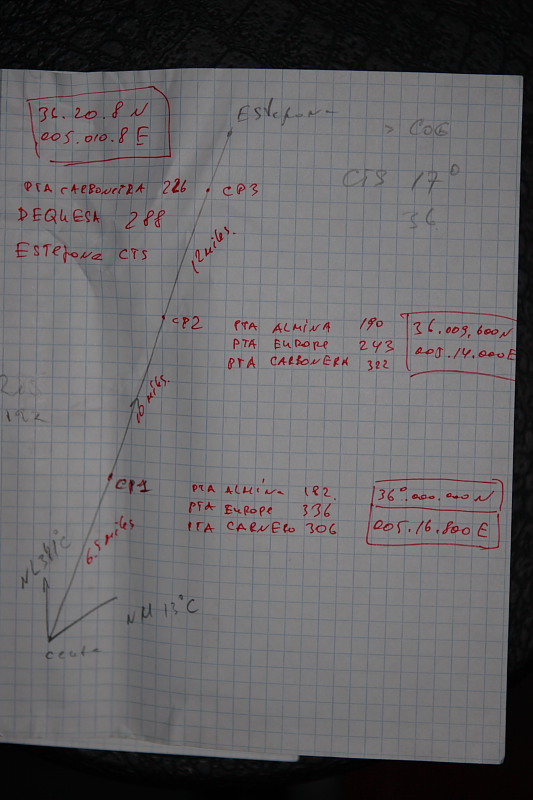 36.20.8 N
005.010.8 E
Estepona
> COG
CTS 17°
36
PTA CARBONERA 226
CP3
DEQUESA 288
ESTEPONA CTS
12 miles.
CP2
PTA ALMINA 190
PTA EUROPE 243
PTA CARBONERA 322
36.009,600N
005.14.000E
10 miles.
CP1
PTA ALMINA 182.
PTA EUROPE 336
PTA CARNERO 306
36°.000.000 N
005.16.800 E
6.5 miles
NM 13°C
ceuta